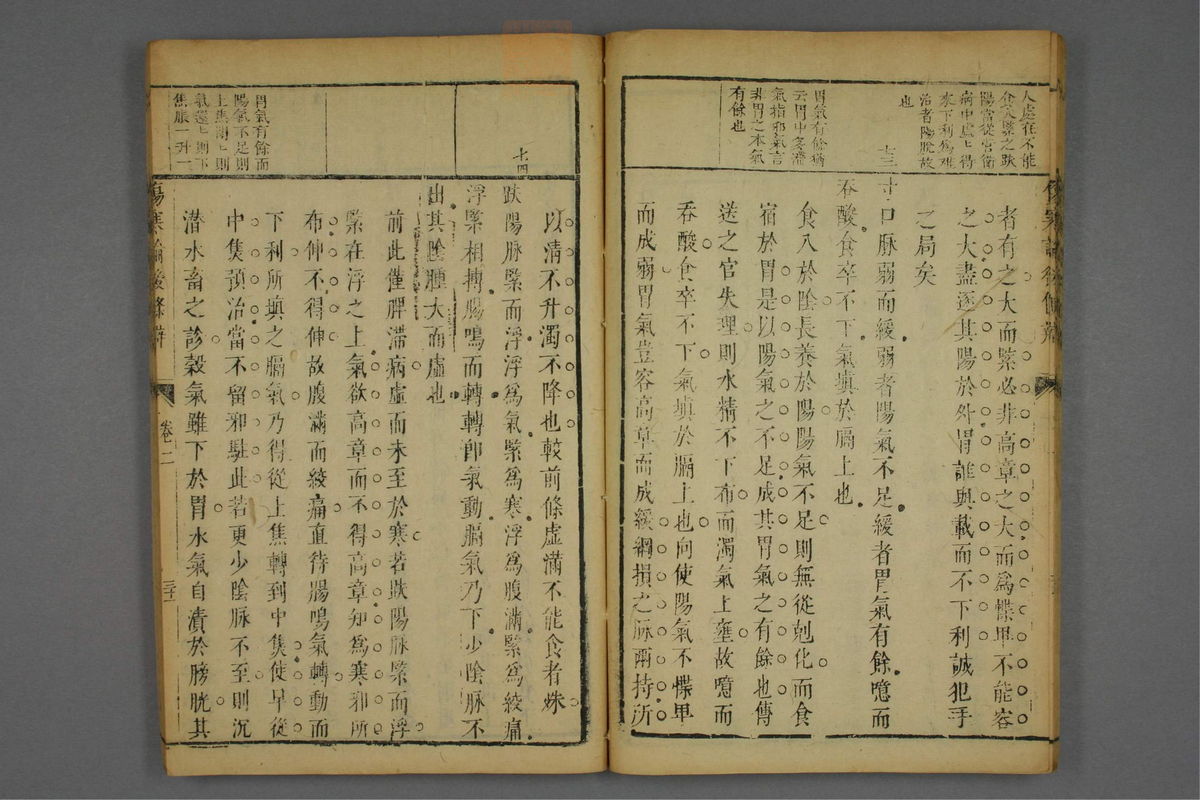 人處在不能
食入緊之趺
陽當從宮衛
病中虛上得
水下利為難
治者陽脫故
也
十三
胃氣有餘病
云胃中冬滯
氣指邪氣言
非胃之本氣
有餘也
者有之大而緊必非高章之大而為惵卑不能容
之大盡逐其陽於外胃誰與載而不下利誠犯手
之局矣
寸口脉弱而緩弱者陽氣不足緩者胃氣有餘噫而
吞酸食卒不下氣填於膈上也
食入於陰長養於陽陽氣不足則無從剋化而食
宿於胃是以陽氣之不足成其胃氣之有餘也傳
送之官失理則水精不下布而濁氣上壅故噫而
吞酸食卒不下氣填於膈上也向使陽氣不惵卑
而成弱胃氣豈容高章而成緩綱損之脉兩持所
十四
胃氣有餘而
陽氣不足則
上焦閉上則
氣還上則下
焦脹一升一
以清不升濁不降也較前條虛滿不能食者殊
趺陽脉緊而浮浮為氣緊為寒浮為腹滿緊為絞痛
浮緊相搏腸鳴而轉轉即氣動膈氣乃下少陰脉不
出其陰腫大而虛也
前此僅脾滯病虛而未至於寒若趺陽脉緊而浮
緊在浮之上氣欲高章而不得高章知為寒邪所
布伸不得伸故腹滿而絞痛直待腸鳴氣轉動而
下利所填之膈氣乃得從上焦轉到中焦使早從
中焦預治當不留邪駐此若更少陰脉不至則沉
潛水畜之診穀氣雖下於胃水氣自漬於膀胱其
傷寒論後條辨
卷二